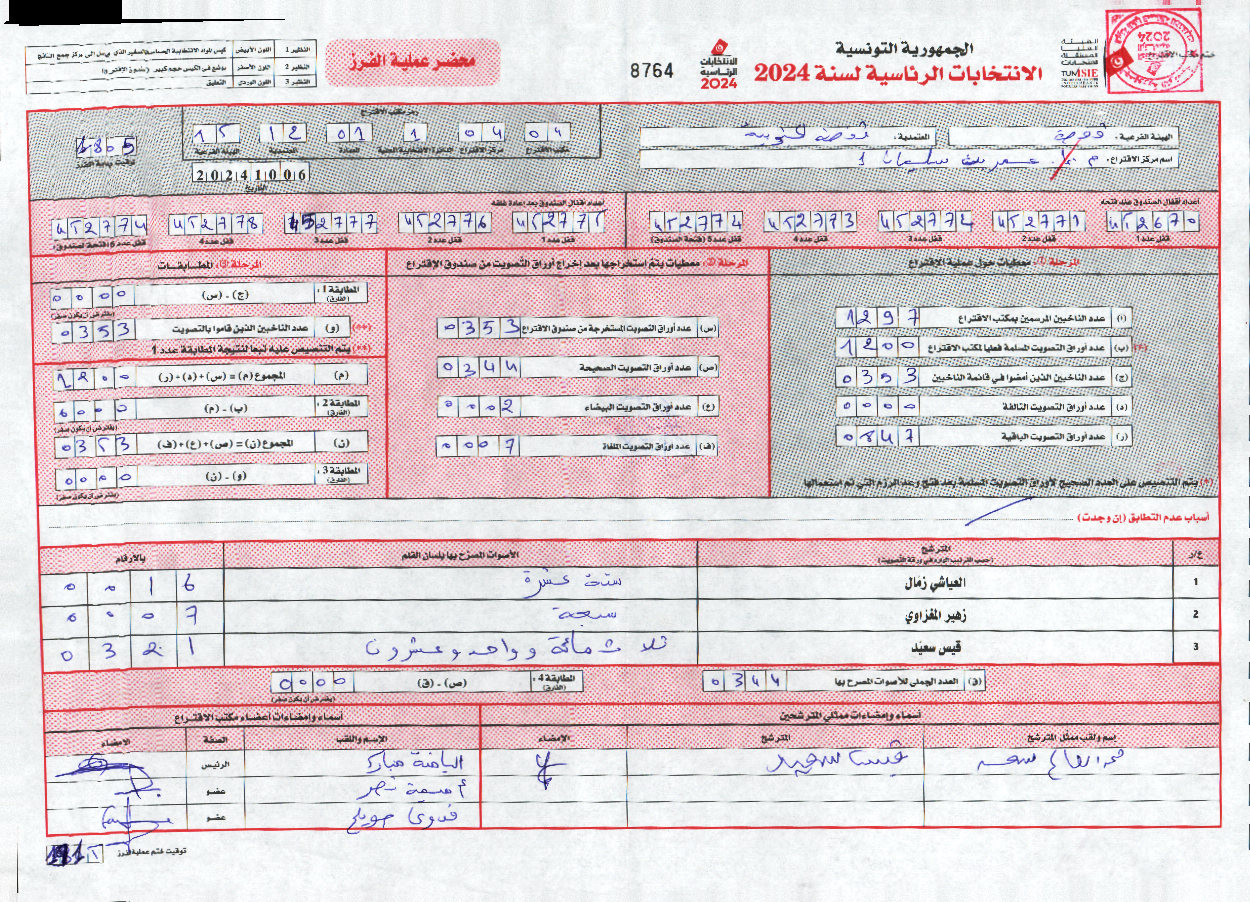 الجمهورية التونسية
الانتخابات الرئاسية لسنة 2024
الهيئة العليا المستقلة للانتخابات
الانتخابات الرئاسية 2024
8764
محضر عملية الفرز
النظير 1 اللون الأبيض
النظير 2 اللون الأصفر
النظير 3 اللون الوردي التعليق
الهيئة الفرعية : قفصة
المعتمدية :
اسم مركز الاقتراع :
رمز مكتب الاقتراع
04 04 1 01 12 15
مكتب الاقتراع مركز الاقتراع الدائرة الانتخابية المحلية العمادة المعتمدية الهيئة الفرعية
20241006
التاريخ
توقيت بداية الفرز
أعداد أقفال الصندوق عند فتحه
452670 452771 452772 452773 452774
قفل عدد 1 قفل عدد 2 قفل عدد 3 قفل عدد 4 قفل عدد 5 (فتحة الصندوق)
أعداد أقفال الصندوق بعد إعادة غلقه
452775 452776 452777 452778 452774
قفل عدد 1 قفل عدد 2 قفل عدد 3 قفل عدد 4 قفل عدد 5 (فتحة الصندوق)
المرحلة ①: معطيات حول عملية الاقتراع
(أ) عدد الناخبين المرسمين بمكتب الاقتراع 1297
(*) (ب) عدد أوراق التصويت المسلمة فعليا لمكتب الاقتراع 1200
(ج) عدد الناخبين الذين أمضوا في قائمة الناخبين 0353
(د) عدد أوراق التصويت التالفة 0000
(ر) عدد أوراق التصويت الباقية 0847
(*) يتم التنصيص على العدد الصحيح لأوراق التصويت المسلمة بعد فتح وعد الرزم التي تم استعمالها
المرحلة ②: معطيات يتم استخراجها بعد إخراج أوراق التصويت من صندوق الاقتراع
(س) عدد أوراق التصويت المستخرجة من صندوق الاقتراع 0353
(ص) عدد أوراق التصويت الصحيحة 0344
(ع) عدد أوراق التصويت البيضاء 0002
(ف) عدد أوراق التصويت الملغاة 0007
المرحلة ③: المطابقات
المطابقة 1 : (الفارق) (ج) - (س) 0000
(يفترض أن يكون صفر)
(**) (و) عدد الناخبين الذين قاموا بالتصويت 0353
(**) يتم التنصيص عليه تبعا لنتيجة المطابقة عدد 1
(م) المجموع (م) = (س) + (د) + (ر) 1200
المطابقة 2 : (الفارق) (ب) - (م) 0000
(يفترض أن يكون صفر)
(ن) المجموع (ن) = (ص) + (ع) + (ف) 0353
المطابقة 3 : (الفارق) (و) - (ن) 0000
(يفترض أن يكون صفر)
أسباب عدم التطابق (إن وجدت)
ع/ر المترشح الأصوات المصرح بها بلسان القلم بالأرقام
(حسب الترتيب الوارد في ورقة التصويت)
1 العياشي زمال ستة عشرة 0016
2 زهير المغزاوي سبعة 0007
3 قيس سعيّد ثلاث مائة وواحد وعشرون 0321
(ق) العدد الجملي للأصوات المصرح بها 0344
المطابقة 4 : (الفارق) (ص) - (ق) 0000
(يفترض أن يكون صفر)
أسماء وإمضاءات ممثلي المترشحين
أسماء وإمضاءات أعضاء مكتب الاقتراع
إسم ولقب ممثل المترشح المترشح الإمضاء
الإسم واللقب الصفة الإمضاء
قيس سعيد
الرئيس
عضو
عضو
توقيت ختم عملية الفرز